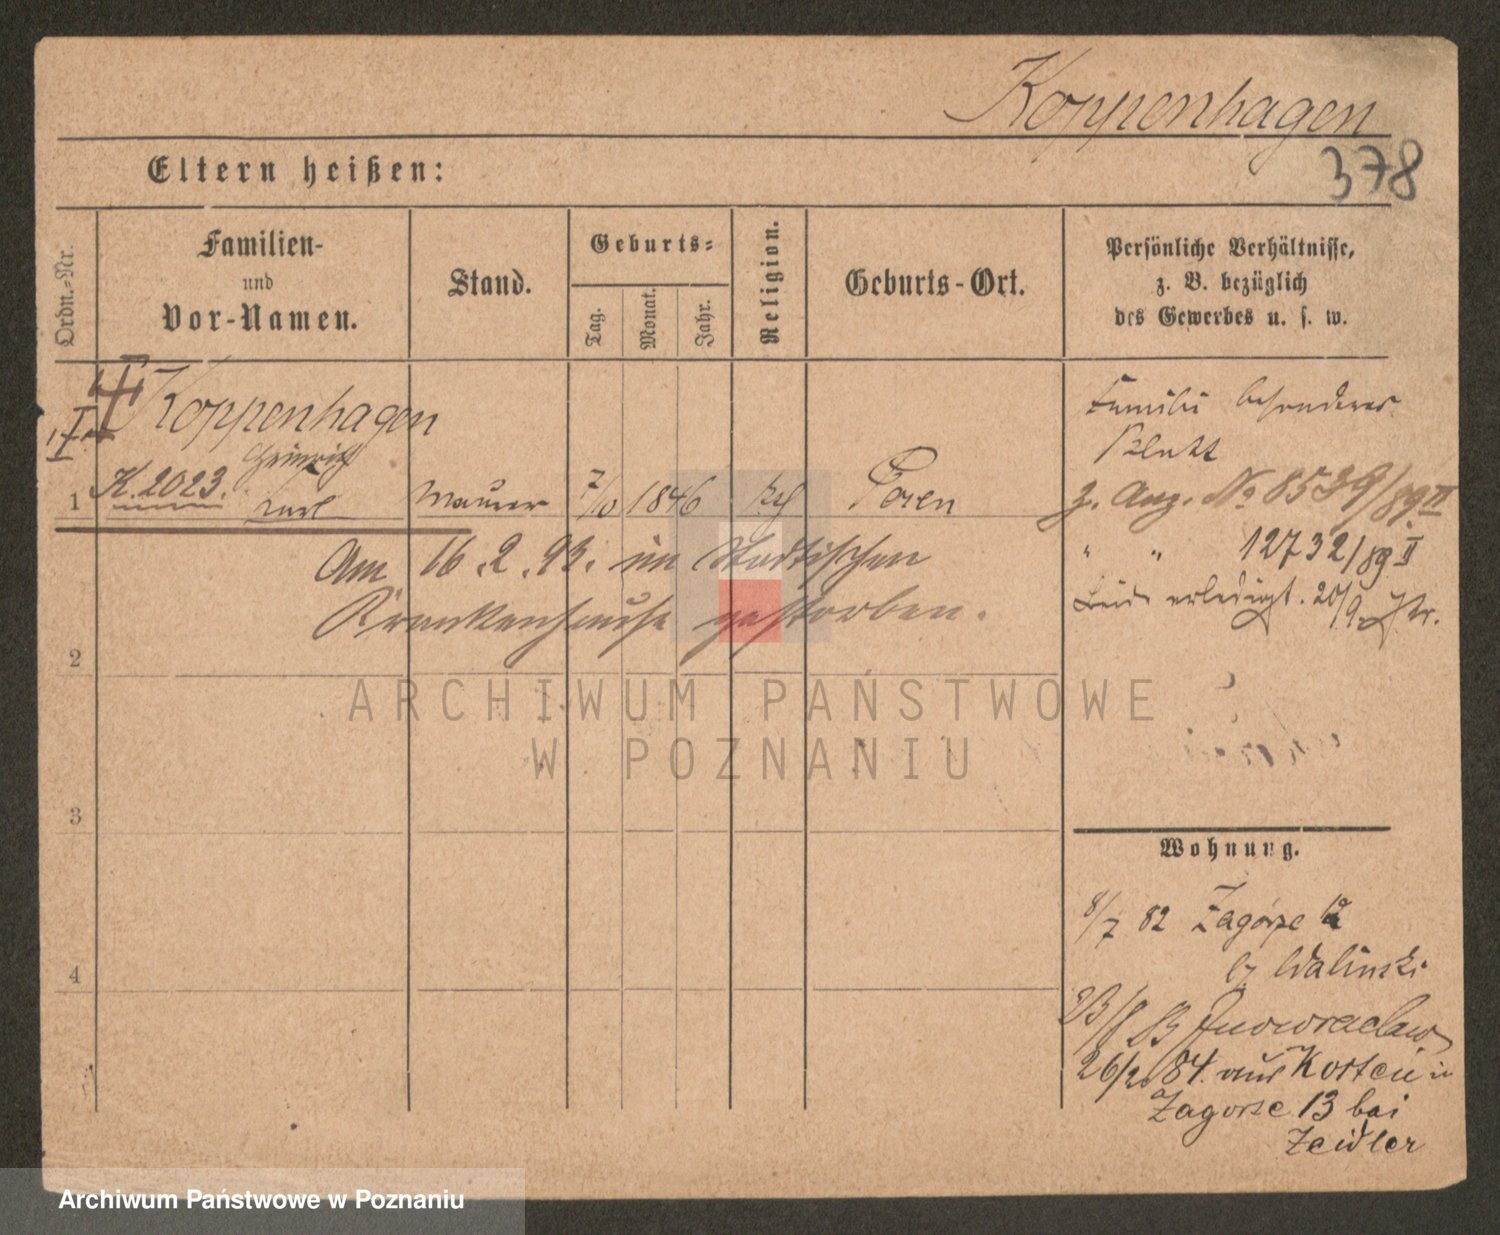 Koppenhagen
378
Eltern heißen:
Ordn.-Nr.
Familien-
und
Vor-Namen.
Stand.
Geburts-
Tag.
Monat.
Jahr.
Religion.
Geburts-Ort.
Persönliche Verhältnisse,
z. B. bezüglich
des Gewerbes u. s. w.
I
Koppenhagen
Heinrich
1 K. 2023. Karl Maurer 7/10 1846 kth Posen
Am 16.2.93. im Städtischen
Krankenhause gestorben.
Familie besonderes
Blatt
z. Ang. No 8539/89 II
" " 12732/89 II
Beide erledigt. 20/9.
2
3
4
Wohnung.
8/7 82 Zagórze 12
b/ Walinski
23/8 83 Inowraclaw
26/2 84. aus Kosten in
Zagorze 13 bei
Zeidler
ARCHIWUM PAŃSTWOWE
W POZNANIU
Archiwum Państwowe w Poznaniu